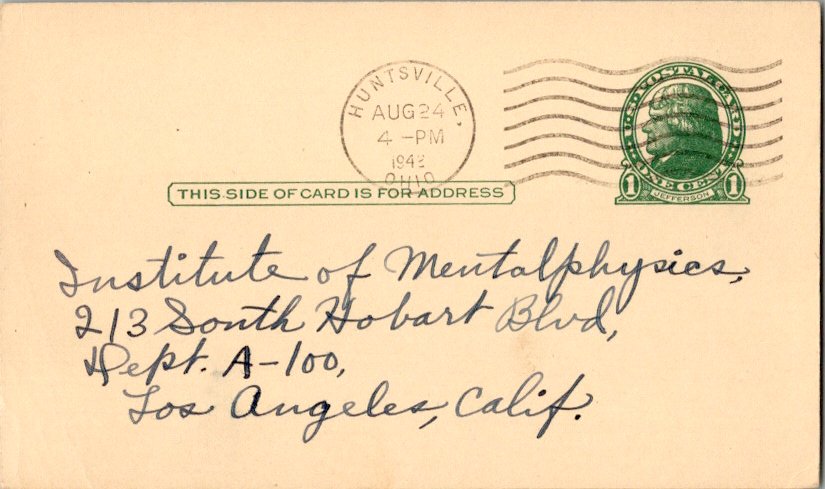 HUNTSVILLE,
AUG 24
4 - PM
OHIO
U.S. POSTAL CARD
ONE CENT
1 1
JEFFERSON
THIS SIDE OF CARD IS FOR ADDRESS
Institute of Mentalphysics,
213 South Hobart Blvd,
Dept. A-100,
Los Angeles, Calif.